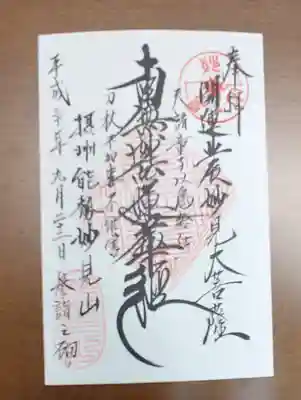 奉拝
開運北辰妙見大菩薩
天諸童子以為給使
南無妙法蓮華経
刀杖不加毒不能害
摂州能勢妙見山
平成 年 九月 日 参詣之砌